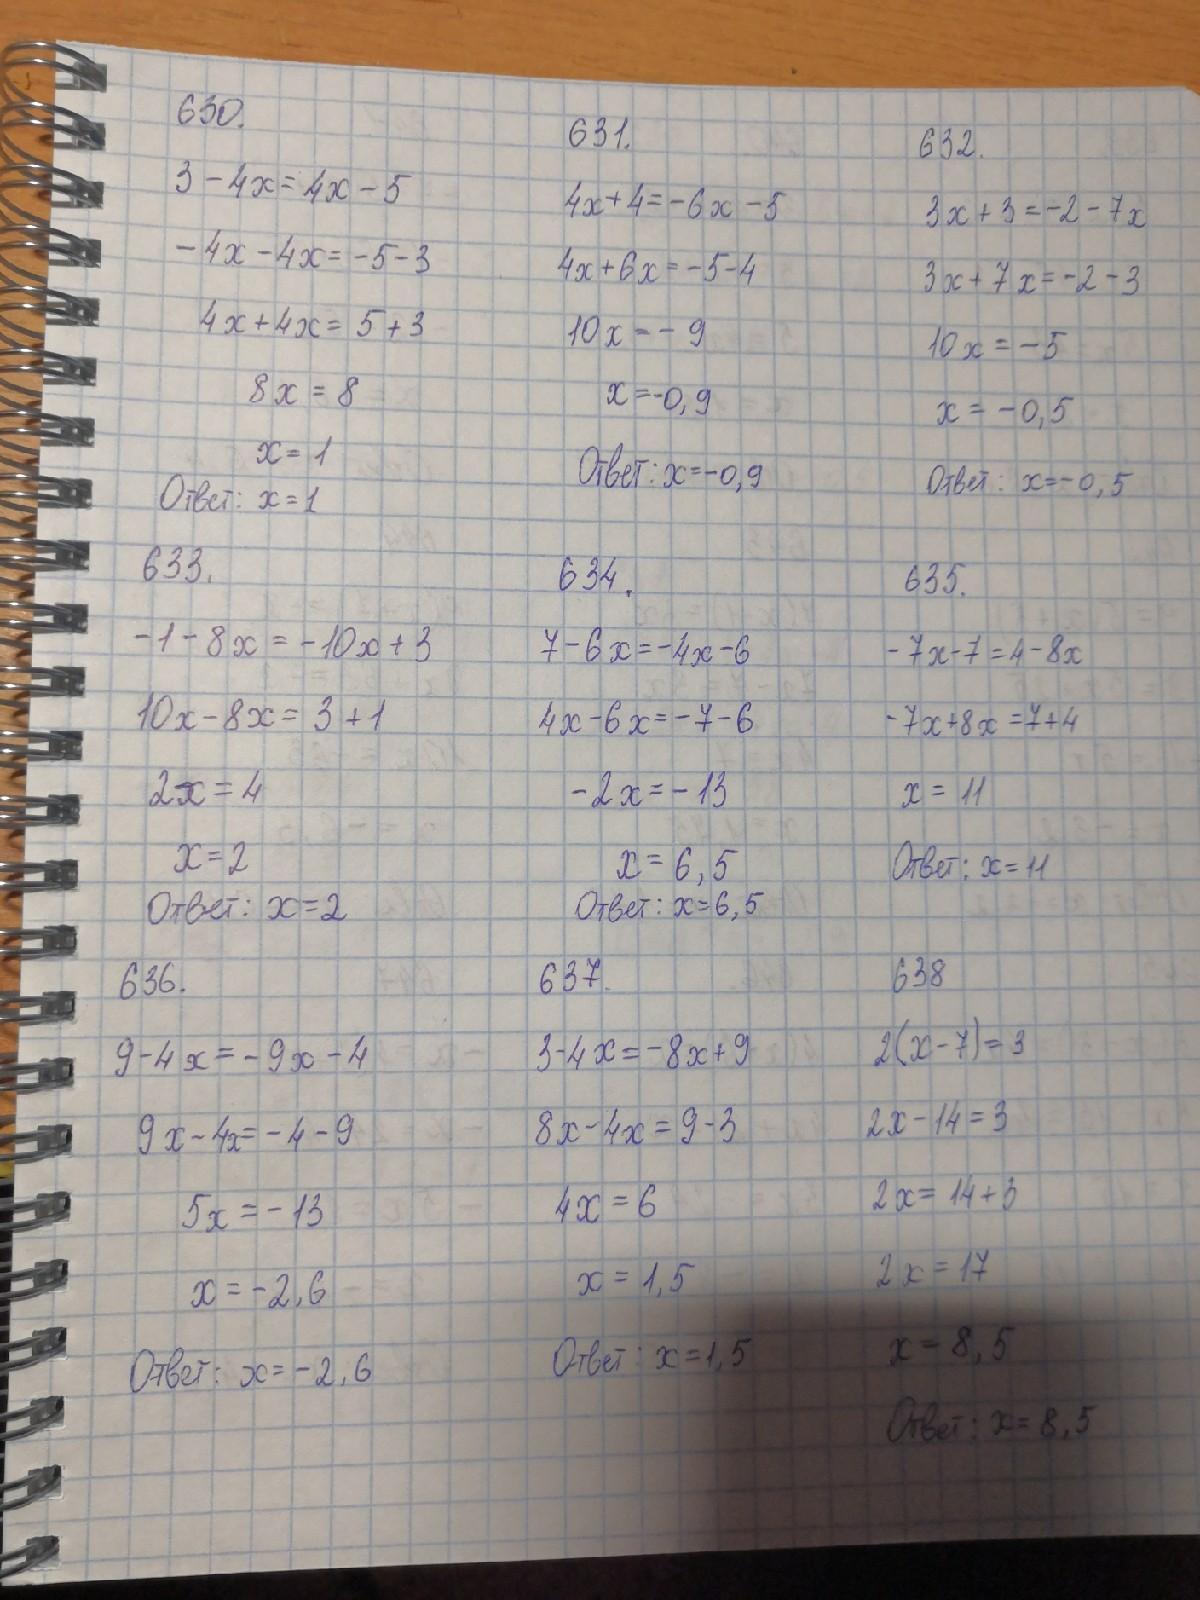 630.
3 - 4x = 4x - 5
- 4x - 4x = -5 - 3
4x + 4x = 5 + 3
8x = 8
x = 1
Ответ: x = 1
631.
4x + 4 = -6x - 5
4x + 6x = -5 - 4
10x = - 9
x = -0,9
Ответ: x = -0,9
632.
3x + 3 = -2 - 7x
3x + 7x = -2 - 3
10x = -5
x = -0,5
Ответ: x = -0,5
633.
-1 - 8x = -10x + 3
10x - 8x = 3 + 1
2x = 4
x = 2
Ответ: x = 2
634.
7 - 6x = -4x - 6
4x - 6x = -7 - 6
-2x = -13
x = 6,5
Ответ: x = 6,5
635.
-7x - 7 = 4 - 8x
-7x + 8x = 7 + 4
x = 11
Ответ: x = 11
636.
9 - 4x = -9x - 4
9x - 4x = -4 - 9
5x = -13
x = -2,6
Ответ: x = -2,6
637.
3 - 4x = -8x + 9
8x - 4x = 9 - 3
4x = 6
x = 1,5
Ответ: x = 1,5
638
2(x - 7) = 3
2x - 14 = 3
2x = 14 + 3
2x = 17
x = 8,5
Ответ: x = 8,5